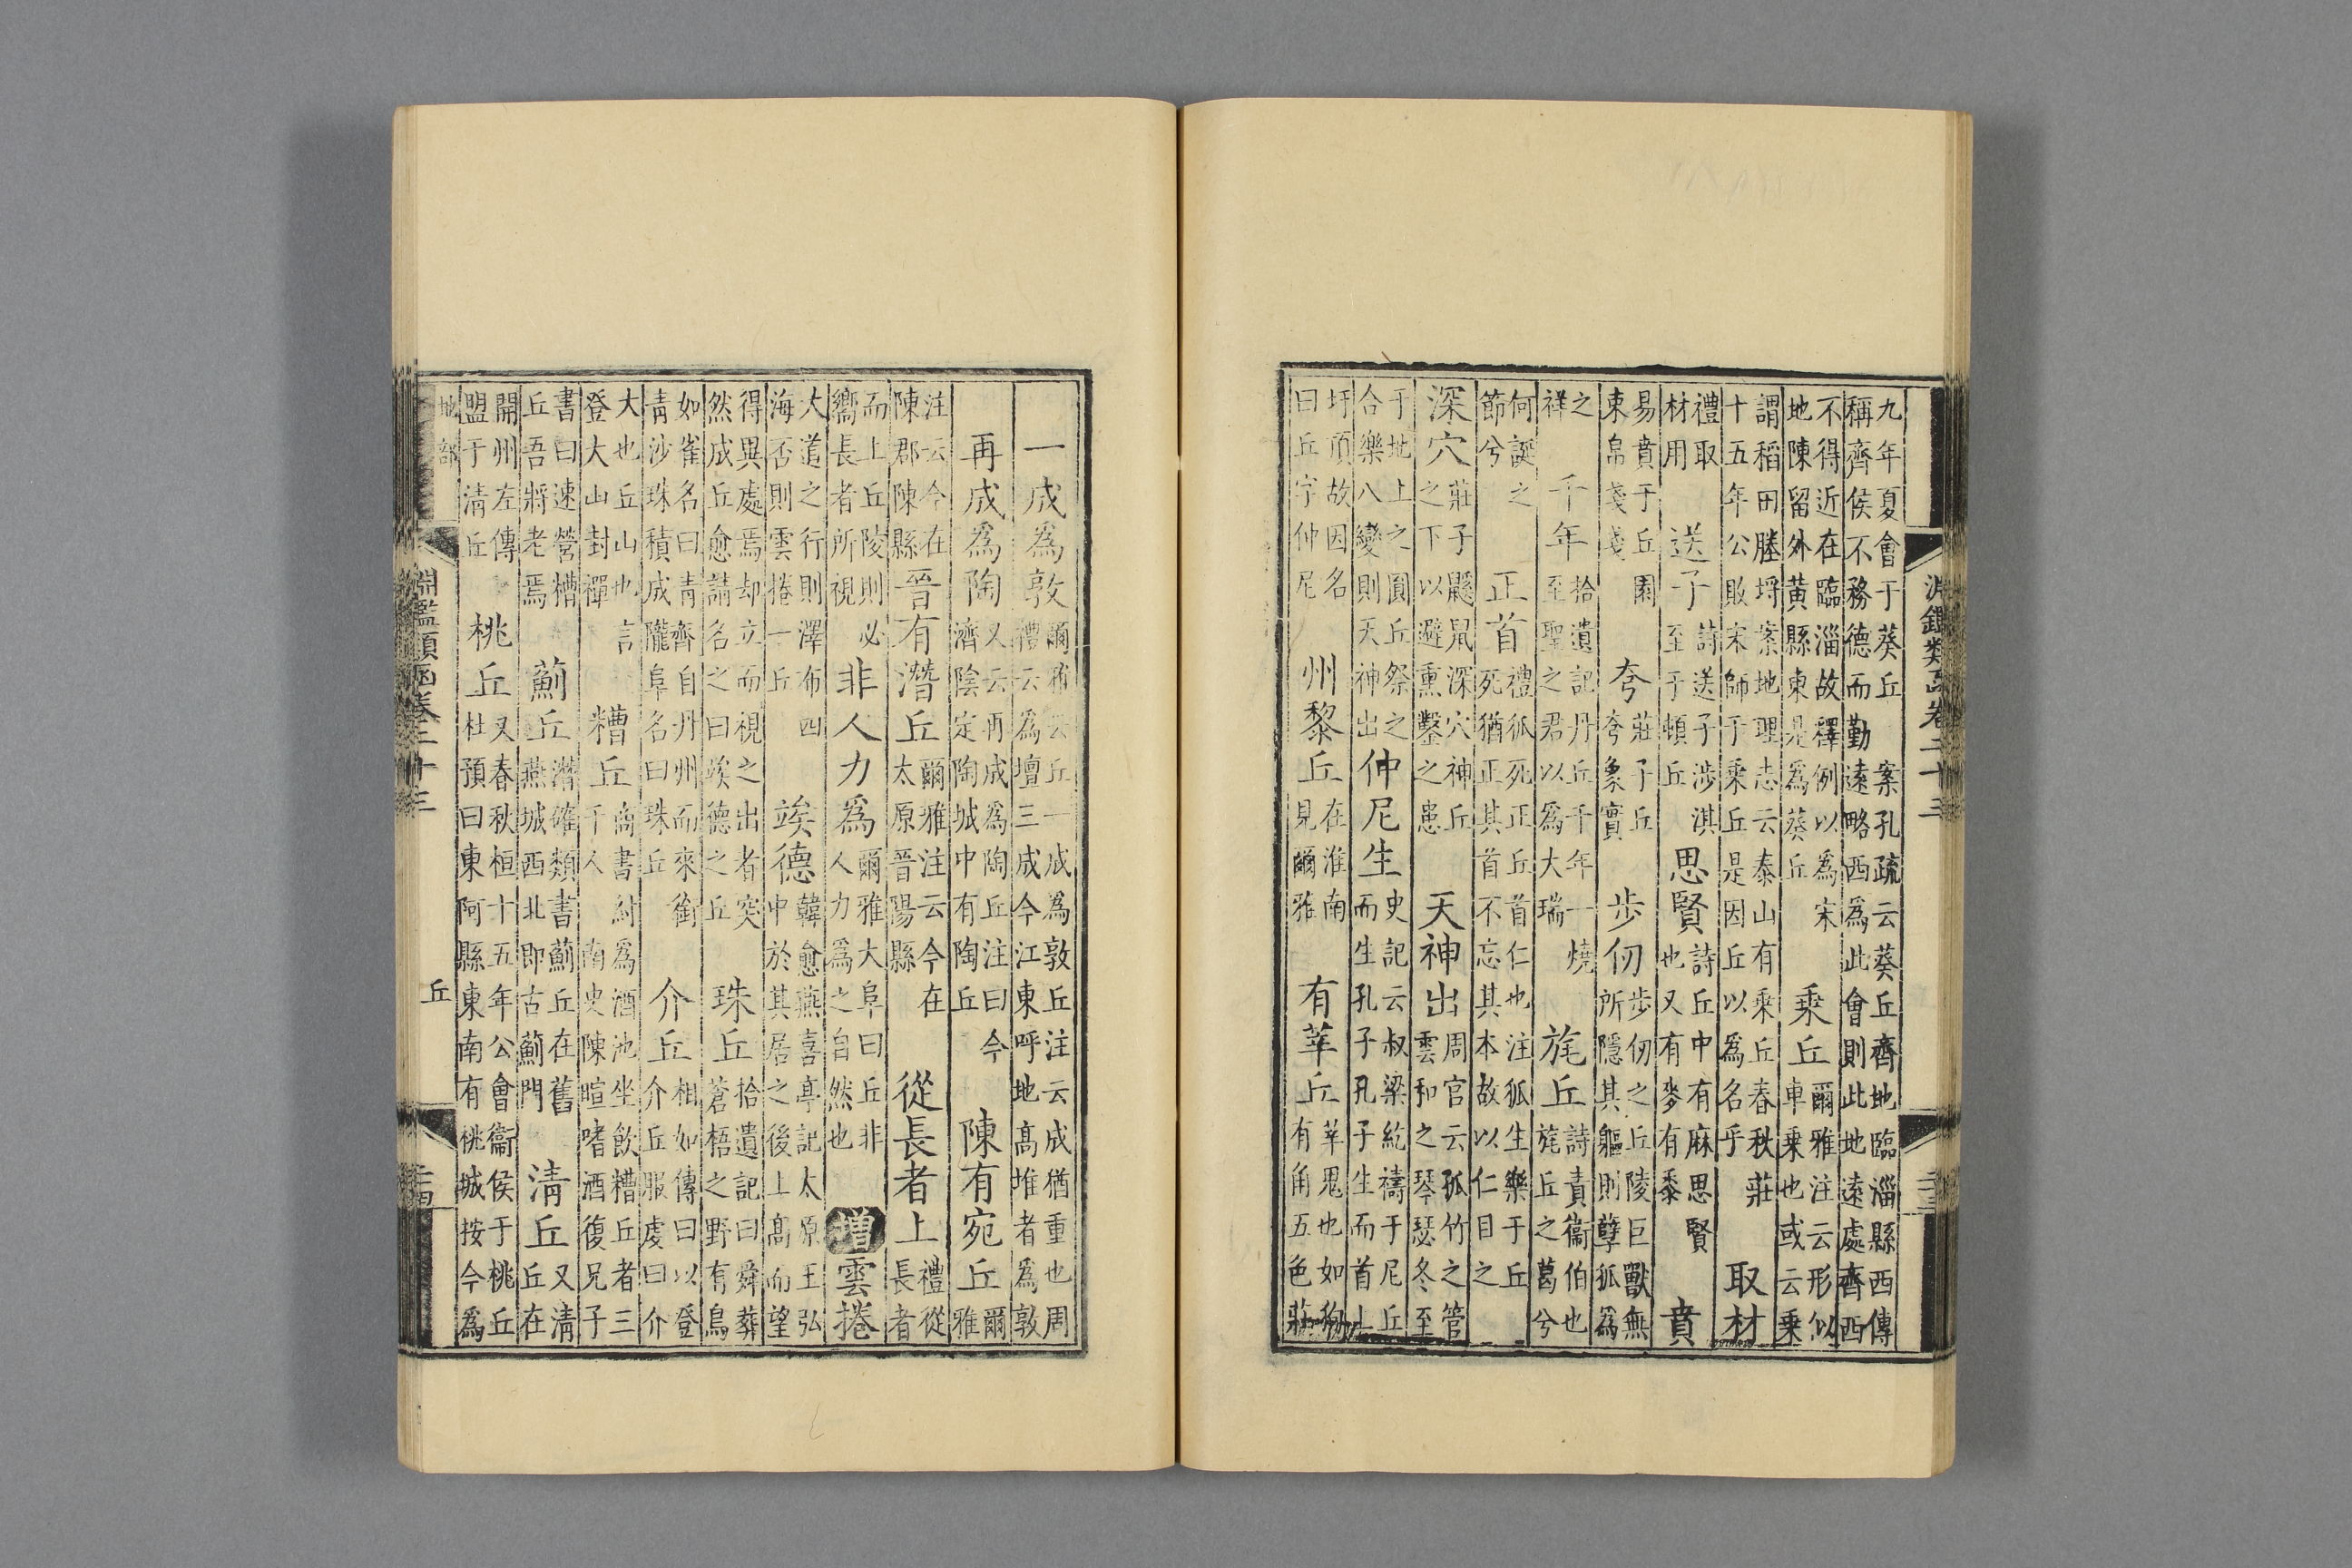 淵鑑類函卷二十三
九年夏會于葵丘 案孔疏云葵丘齊地臨淄縣西傳
稱齊侯不務德而勤遠略西爲此會則此地遠處齊西
不得近在臨淄故釋例以爲宋
地陳留外黃縣東是爲葵丘
乘丘
爾雅注云形似
車乘也或云乘
謂稻田塍埒案地理志云泰山有乘丘春秋莊
十五年公敗宋師于乘丘是因丘以爲名乎
取材
禮取
材用
送子
詩送子涉淇
至于頓丘
思賢
詩丘中有麻思賢
也又有麥有黍
賁
易賁于丘園
東帛戔戔
夸
莊子丘
夸象實
步仞
步仞之丘陵巨獸無
所隱其軀則孽狐爲
之
祥
千年
拾遺記丹丘千年一燒
至聖之君以爲大瑞
旄丘
詩責衞伯也
旄丘之葛兮
何誕之
節兮
正首
禮狐死正丘首仁也注狐生樂于丘
死猶正其首不忘其本故以仁目之
深穴
莊子鼷鼠深穴神丘
之下以避熏鑿之患
天神出
周官云孤竹之管
雲和之琴瑟冬至
于地上之圓丘祭之
合樂八變則天神出
仲尼生
史記云叔梁紇禱于尼丘
而生孔子孔子生而首上
圩頂故因名
曰丘字仲尼
州黎丘
在淮南
見爾雅
有莘丘
莘鬼也如狗
有角五色莊
一成爲敦
爾雅云丘一成爲敦丘注云成猶重也周
禮云爲壇三成今江東呼地高堆者爲敦
再成爲陶
又云再成爲陶丘注曰今
濟陰定陶城中有陶丘
陳有宛丘
爾
雅
注云今在
陳郡陳縣
晉有潛丘
爾雅注云今在
太原晉陽縣
從長者上
禮從
長者
而上丘陵則必
嚮長者所視
非人力爲
爾雅大阜曰丘非
人力爲之自然也
增
雲捲
大道之行則澤布四
海否則雲捲一丘
竢德
韓愈燕喜亭記太原王弘
中於其居之後上高而望
得異處焉却立而視之出者突
然成丘愈請名之曰竢德之丘
珠丘
拾遺記曰舜葬
蒼梧之野有鳥
如雀名曰青齊自丹州而來銜
青沙珠積成隴阜名曰珠丘
介丘
相如傳曰以登
介丘服虔曰介
大也丘山也言
登大山封禪
糟丘
尚書紂爲酒池坐飲糟丘者三
千人 南史陳暄嗜酒復兄子
書曰速營糟
丘吾將老焉
薊丘
潛確類書薊丘在舊
燕城西北即古薊門
淸丘
又淸
丘在
開州左傳
盟于淸丘
桃丘
又春秋桓十五年公會衞侯于桃丘
杜預曰東阿縣東南有桃城按今爲
地部
淵鑑類函卷二十三
丘
二十四